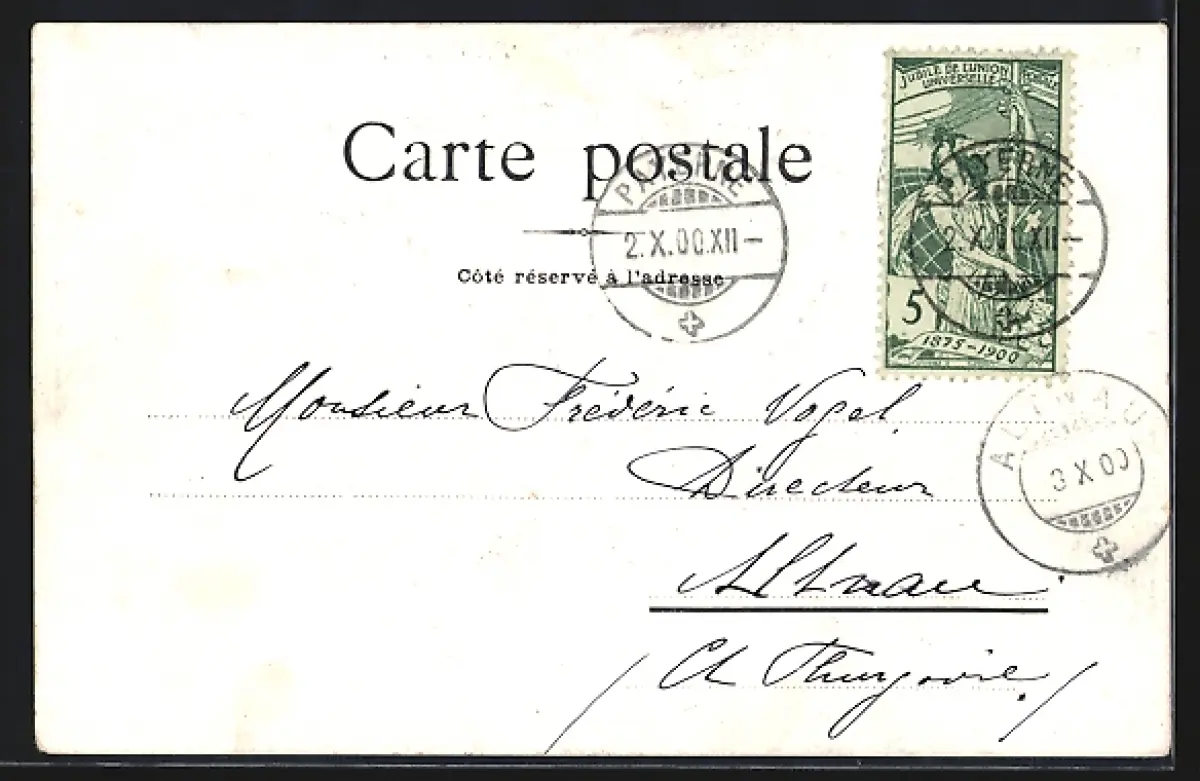 JUBILÉ DE L'UNION
UNIVERSELLE
Carte postale
PAYERNE
2.X.00.XII–
Côté réservé à l'adresse
PAYERNE
2.X.00.XII–
5
1875–1900
Monsieur Frédéric Vogel
Directeur
ALTNAU
3 X 00
Altnau
(Ct Thurgovie.)